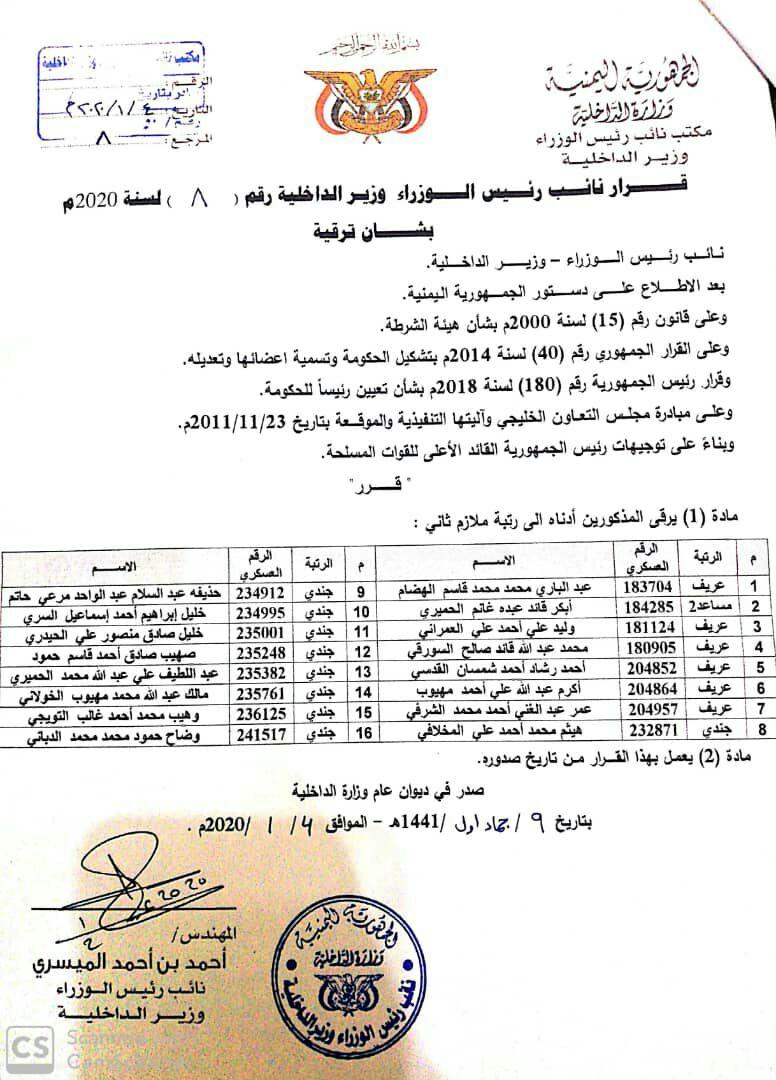 بسم الله الرحمن الرحيم
الجمهورية اليمنية
وزارة الداخلية
مكتب نائب رئيس الوزراء
وزير الداخلية
الرقم:
التاريخ: ٢٠٢٠/١/٤م
المرجع: ٨
قـــرار نائـب رئـيس الـــوزراء وزير الداخلية رقم ( ٨ ) لسنة 2020م
بشـــان ترقية
نائـب رئـيس الـوزراء – وزيـر الداخـلية.
بعد الاطلاع علـى دستور الجمـهورية اليمنية.
وعلى قانون رقم (15) لسنة 2000م بشأن هيئة الشرطة.
وعلى القرار الجمهوري رقم (40) لسنة 2014م بتشكيل الحكومة وتسمية اعضائها وتعديله.
وقرار رئيس الجمهورية رقم (180) لسنة 2018م بشأن تعيين رئيساً للحكومة.
وعلـى مبادرة مجلـس التعـاون الخليجي وآليتها التنفيذية والموقـعة بتاريخ 2011/11/23م.
وبناءً على توجيهات رئيس الجمهورية القائد الأعلى للقوات المسلحة.
" قـــرر"
مادة (1) يرقى المذكورين أدناه الى رتبة ملازم ثاني :
م الرتبة الرقم العسكري الاســـم م الرتبة الرقم العسكري الاســـم
1 عريف 183704 عبد الباري محمد محمد قاسم الهضام 9 جندي 234912 حذيفه عبد السلام عبد الواحد مرعي حاتم
2 مساعد2 184285 أبكر قائد عبده غانم الحميري 10 جندي 234995 خليل إبراهيم أحمد إسماعيل السري
3 عريف 181124 وليد علي أحمد علي العمراني 11 جندي 235001 خليل صادق منصور علي الحيدري
4 عريف 180905 محمد عبد الله قائد صالح السورقي 12 جندي 235248 صهيب صادق أحمد قاسم حمود
5 عريف 204852 أحمد رشاد أحمد شمسان القدسي 13 جندي 235382 عبد اللطيف علي عبد الله محمد الحميري
6 عريف 204864 أكرم عبد الله علي أحمد مهيوب 14 جندي 235761 مالك عبد الله محمد مهيوب الخولاني
7 عريف 204957 عمر عبد الغني أحمد محمد الشرفي 15 جندي 236125 وهيب محمد أحمد غالب التويجي
8 جندي 232871 هيثم محمد أحمد علي المخلافي 16 جندي 241517 وضاح حمود محمد محمد الدباني
مادة (2) يعمل بهذا القرار مـن تاريخ صدوره.
صدر في ديوان عام وزارة الداخلية
بتاريخ ٩ /جماد اول /1441هـ – الموافق ٤ / ١ /2020م .
2020
المهندس/
أحمد بن أحمد الميسري
نائب رئيس الـوزراء
وزيـر الداخـليـة
الجمهورية اليمنية
وزارة الداخلية
نائب رئيس الوزراء وزير الداخلية
CS